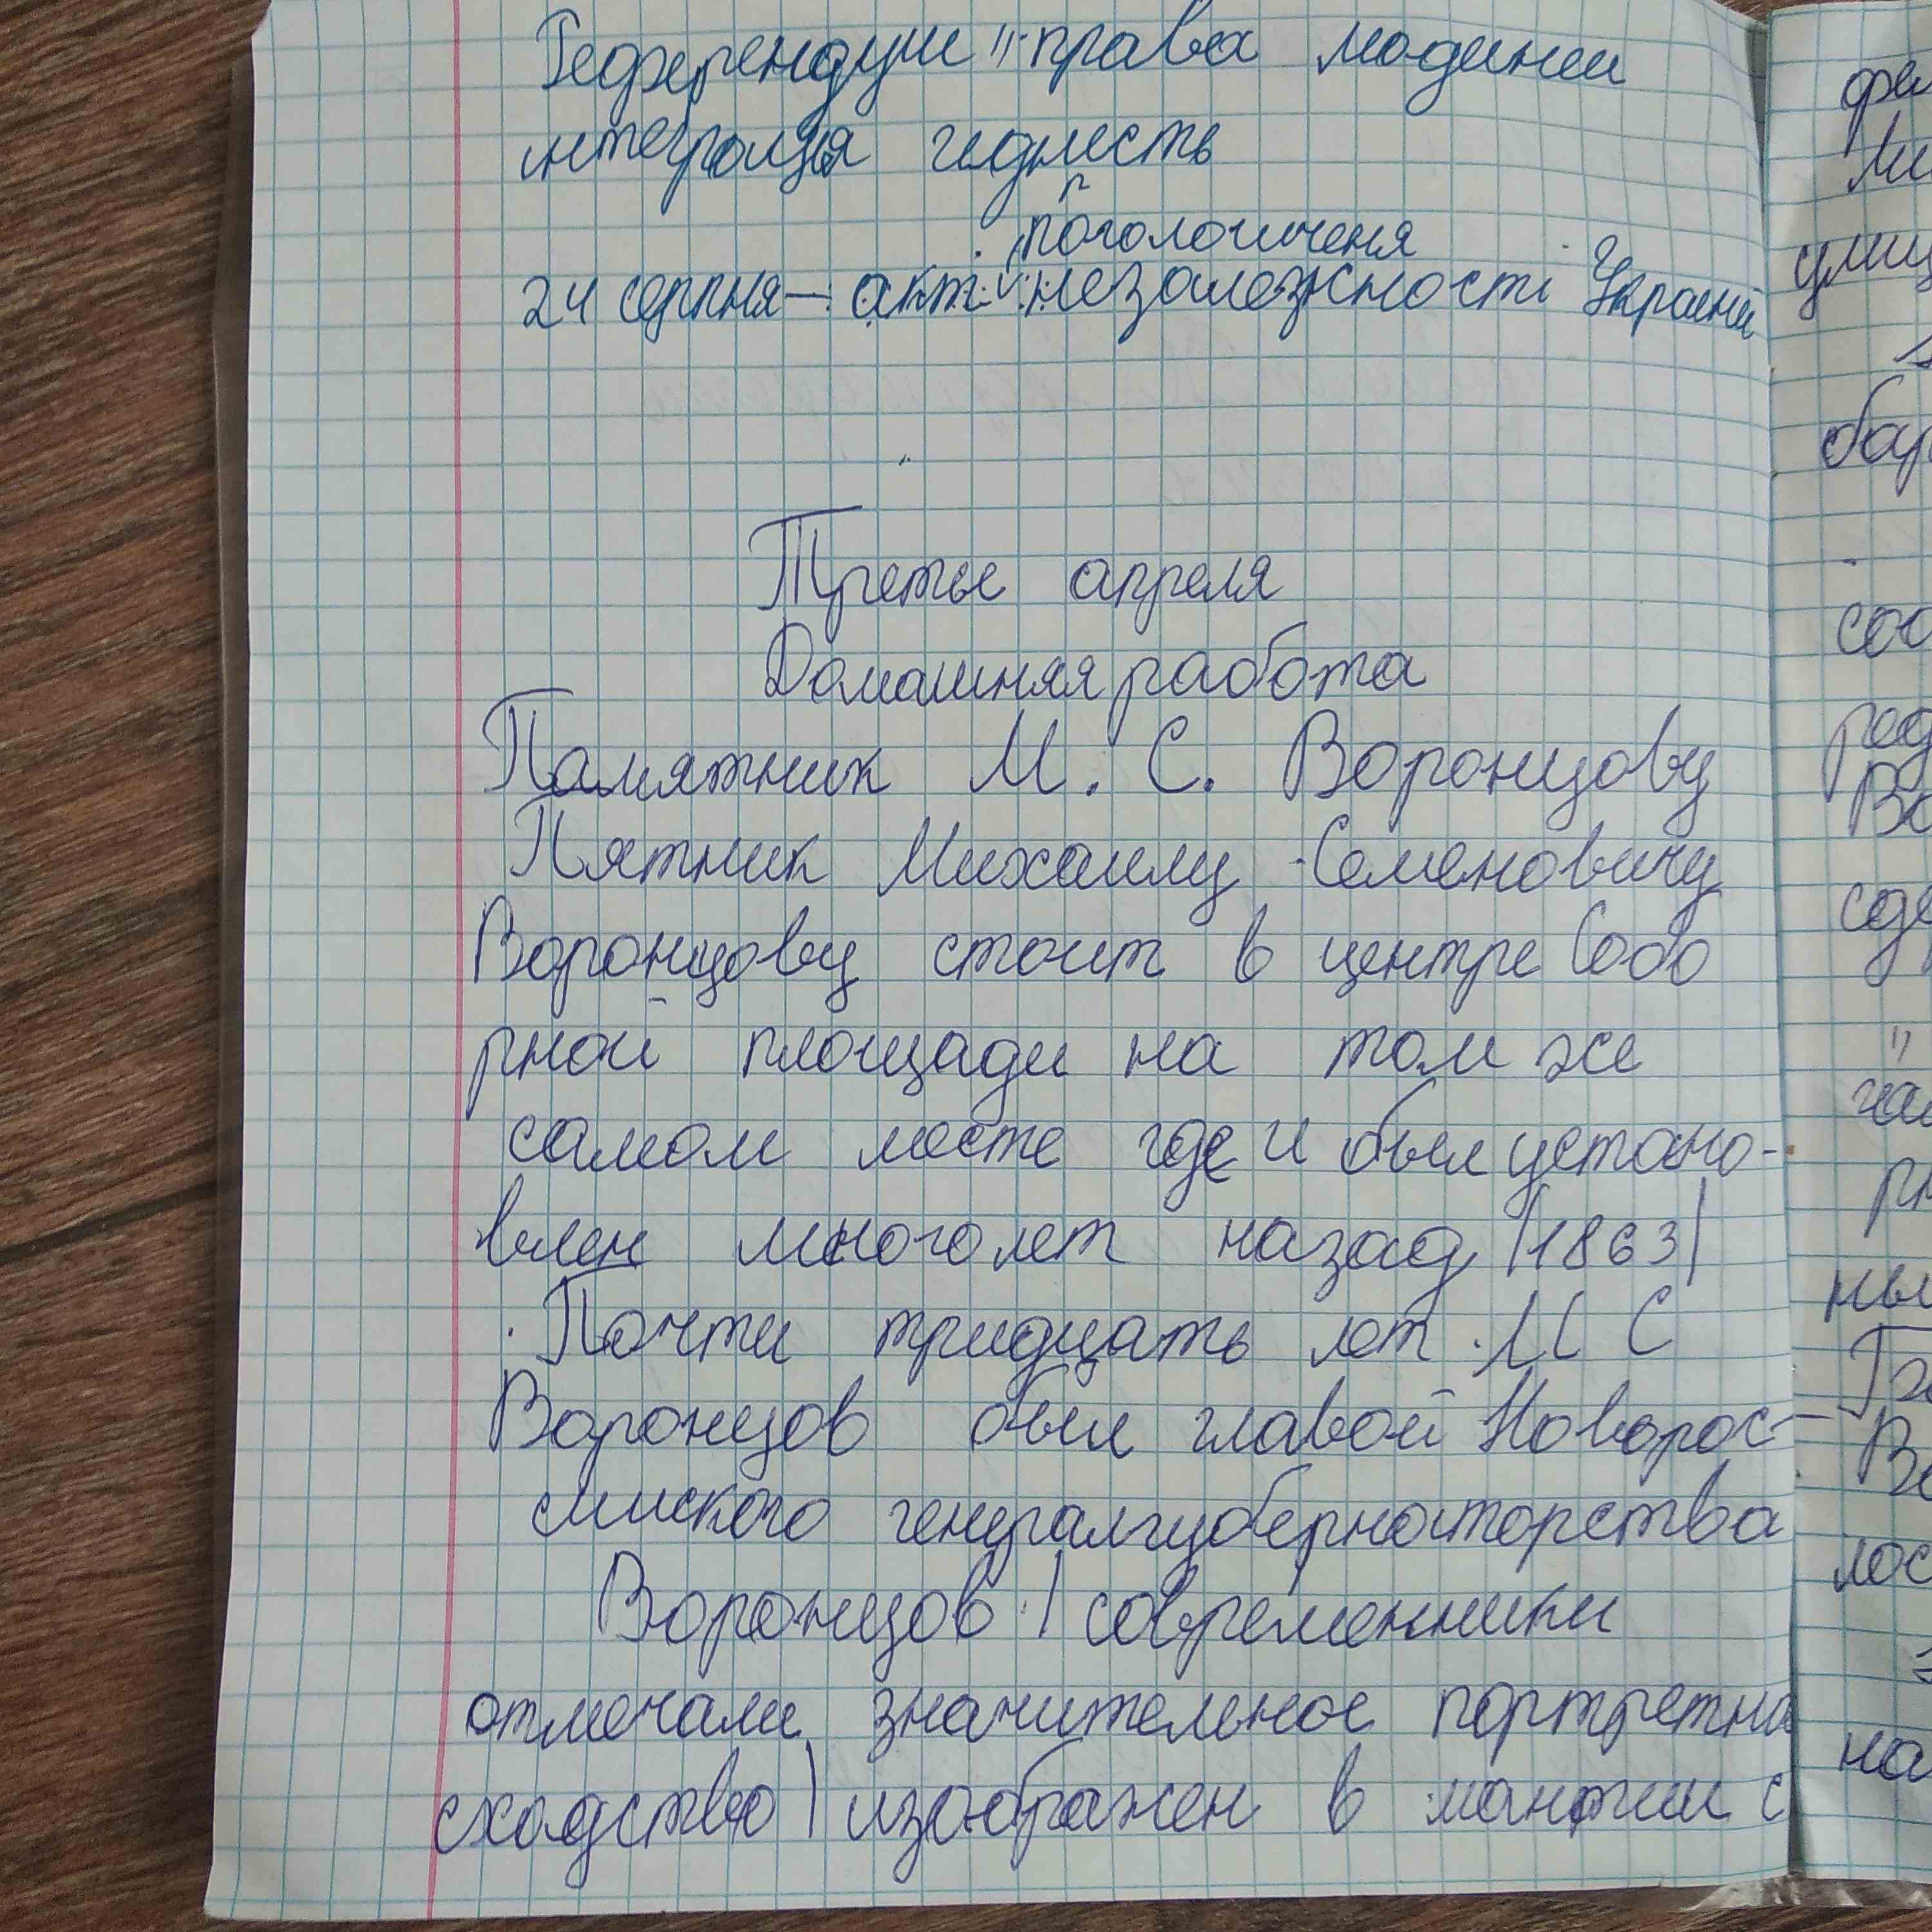 Референдум "права людини
интеграция гидність
поголошеня
24 серпня — акт незалежності Украини
Третье апреля
Домашняя работа
Памятник М. С. Воронцову
Пятник Михаилу Семеновичу
Воронцову стоит в центре Собо
рной площади на том же
самом месте где и был устано-
влен много лет назад (1863)
Почти тридцать лет М С
Воронцов был главой Новорос-
сииского генералгубернаторства
Воронцов | современники
отмечали значительное портретно
сходство | изображен в мантии с